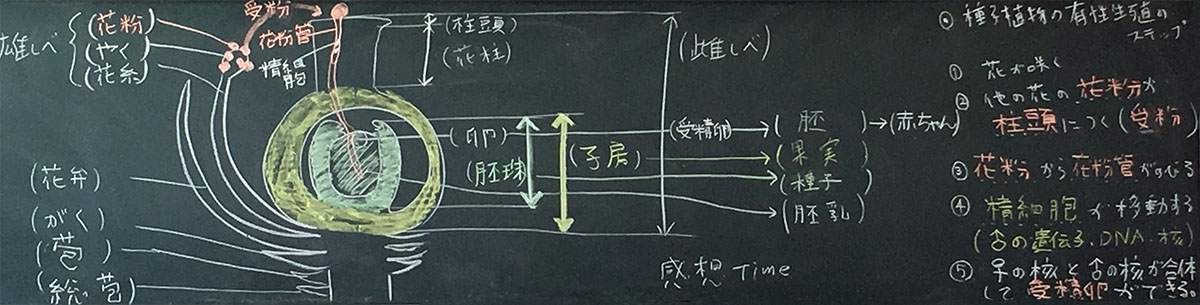 雄しべ
(花粉)
(やく)
(花糸)
受粉
花粉管
精細
胞
(柱頭)
(花柱)
(雌しべ)
(卵)
(胚珠)
(子房)
(受精卵)
(胚)→(赤ちゃん)
(果実)
(種子)
(胚乳)
(花弁)
(がく)
(苞)
(総苞)
感想Time
◎ 種子植物の有性生殖の
ステップ
① 花が咲く
② 他の花の花粉が
柱頭につく(受粉)
③ 花粉から花粉管がのびる
④ 精細胞が移動する
(♂の遺伝子.DNA.核)
⑤ ♀の核と♂の核が合体
して受精卵ができる。